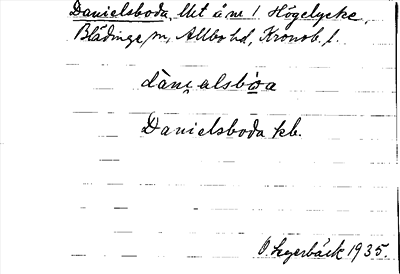 Danielsboda, lht å nr 1 Högelycke,
Blädinge sn, Allbo hd, Kronob. l.
dàni̯alsbὼa
Danielsboda kb.
O. Legerbäck 1935.